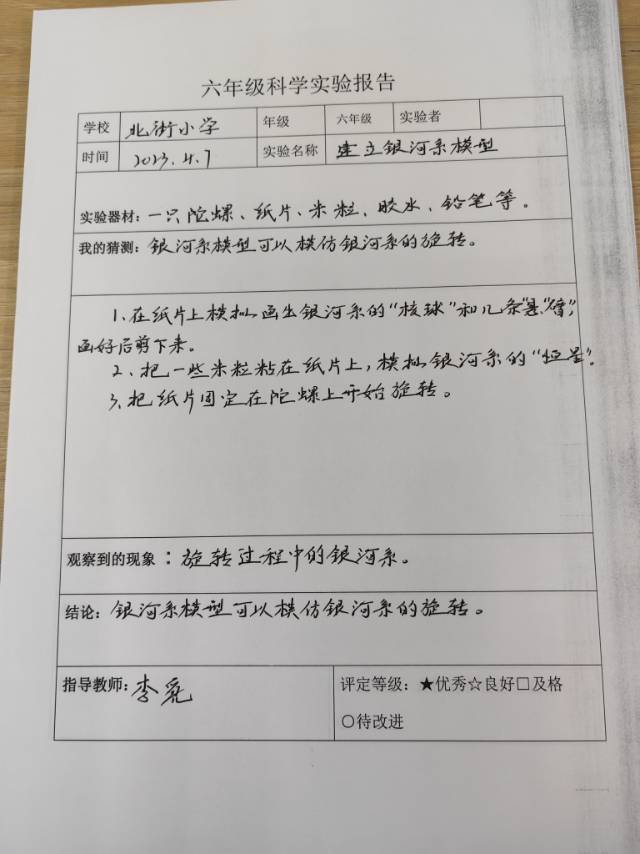 六年级科学实验报告
学校 北街小学 年级 六年级 实验者
时间 2023.4.7 实验名称 建立银河系模型
实验器材：一只陀螺、纸片、米粒、胶水、铅笔等。
我的猜测：银河系模型可以模仿银河系的旋转。
1、在纸片上模拟画出银河系的“核球”和几条“悬臂”，
画好后剪下来。
2、把一些米粒粘在纸片上，模拟银河系的“恒星”。
3、把纸片固定在陀螺上开始旋转。
观察到的现象：旋转过程中的银河系。
结论：银河系模型可以模仿银河系的旋转。
指导教师：李 评定等级：★优秀☆良好□及格
○待改进